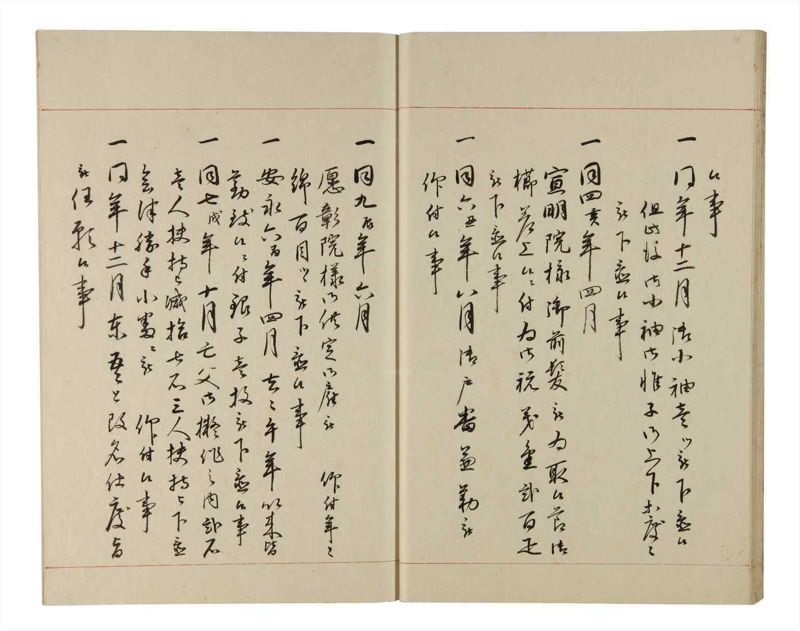 候事
一 同年十二月 御小袖壱ツ被下置候
但此後御小袖御帷子御上下等度々
被下置候事
一 同四亥年四月
宣明院様御前髪被為取候節御
櫛差上候ニ付為御祝義金弐百疋
被下置候事
一 同六丑年八月御戸番並勤被
仰付候事
一 同九辰年六月
愿彰院様御供定御雇被 仰付年々
綿百目ツ被下置候事
一 安永六酉年四月去々午年以来皆
勤致候ニ付銀子壱枚被下置候事
一 同七戌年十月亡父御擬作之内弐石
壱人扶持被減拾七石三人扶持被下置
会津勝手小番ニ被 仰付候事
一 同年十二月東吾と改名仕度旨
被任願候事